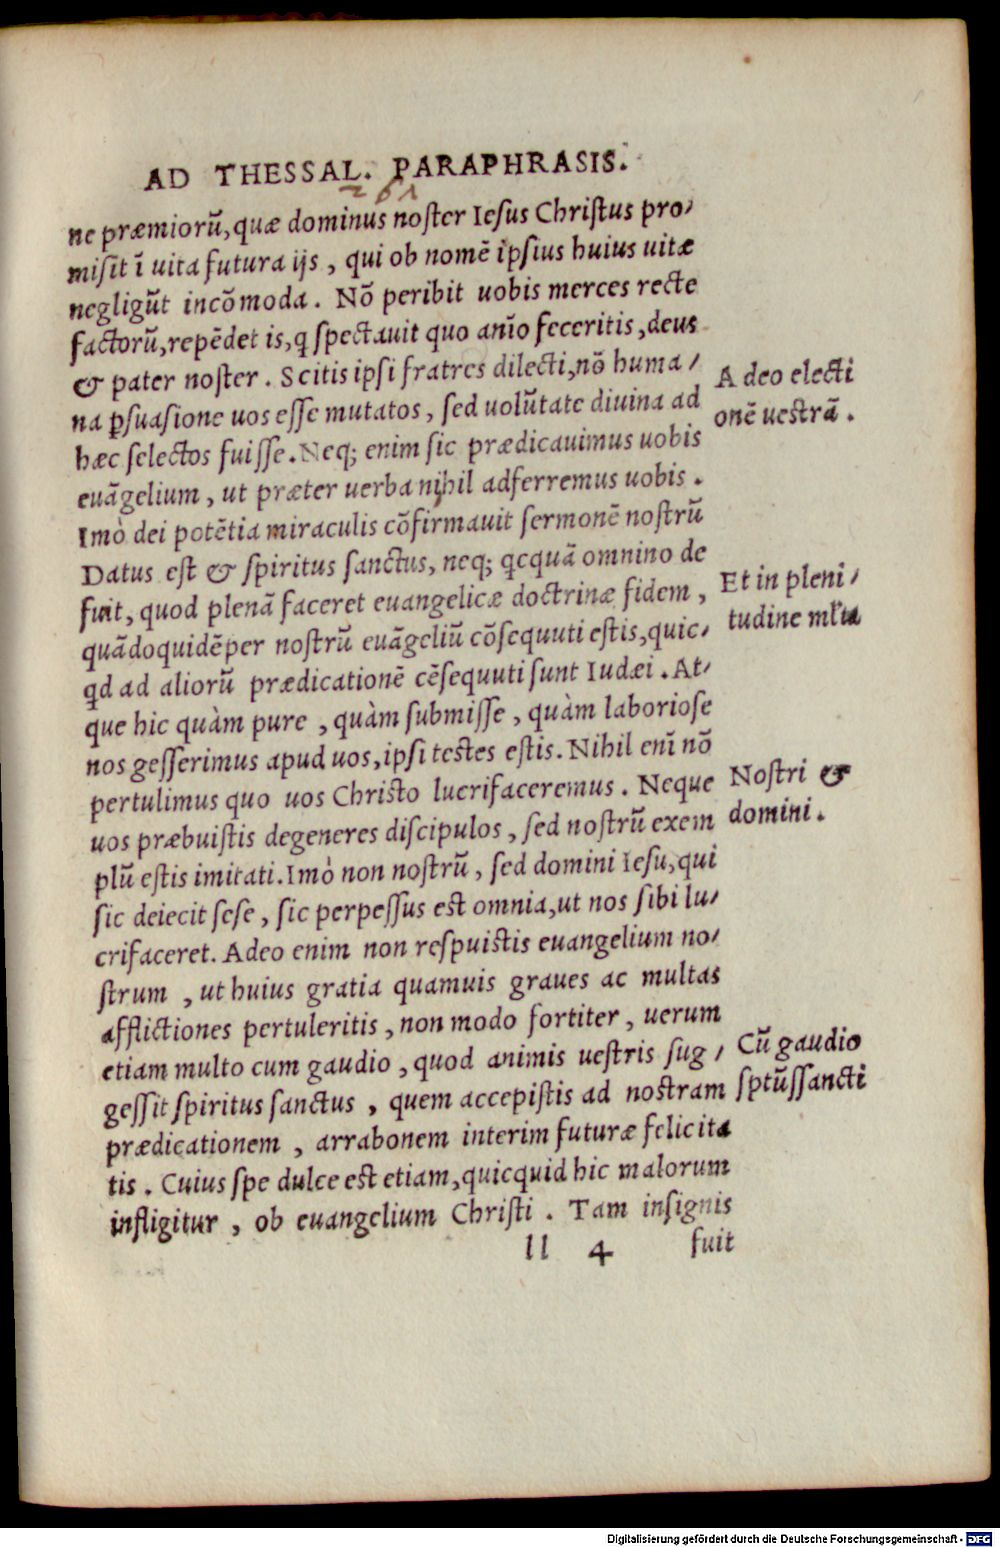 AD THESSAL. PARAPHRASIS.
261
ne præmiorũ, quæ dominus noſter Ieſus Chriſtus pro⸗
miſit ĩ uita futura ijs, qui ob nomẽ ipſius huius uitæ
negligũt incõmoda. Nõ peribit uobis merces recte
factorũ, repẽdet is, ꝗ ſpectauit quo anĩo feceritis, deus
& pater noſter. Scitis ipſi fratres dilecti, nõ huma⸗
na ꝑſuaſione uos eſſe mutatos, ſed uolũtate diuina ad
hæc ſelectos fuiſſe. Neq; enim ſic prædicauimus uobis
euãgelium, ut præter uerba nihil adferremus uobis.
Imò dei potẽtia miraculis cõfirmauit ſermonẽ noſtrũ
Datus eſt & ſpiritus ſanctus, neq; ꝗcquã omnino de
fuit, quod plenã faceret euangelicæ doctrinæ fidem,
quãdoquidẽ per noſtrũ euãgeliũ cõſequuti eſtis, quic⸗
ꝗd ad aliorũ prædicationẽ cẽſequuti ſunt Iudæi. At⸗
que hic quàm pure, quàm ſubmiſſe, quàm laborioſe
nos geſſerimus apud uos, ipſi teſtes eſtis. Nihil enĩ nõ
pertulimus quo uos Chriſto lucrifaceremus. Neque
uos præbuiſtis degeneres diſcipulos, ſed noſtrũ exem
plũ eſtis imitati. Imò non noſtrũ, ſed domini Ieſu, qui
ſic deiecit ſeſe, ſic perpeſſus eſt omnia, ut nos ſibi lu⸗
crifaceret. Adeo enim non reſpuiſtis euangelium no⸗
ſtrum, ut huius gratia quamuis graues ac multas
afflictiones pertuleritis, non modo fortiter, uerum
etiam multo cum gaudio, quod animis ueſtris ſug⸗
geſſit ſpiritus ſanctus, quem accepiſtis ad noſtram
prædicationem, arrabonem interim futuræ felicita
tis. Cuius ſpe dulce eſt etiam, quicquid hic malorum
infligitur, ob euangelium Chriſti. Tam inſignis
ll 4 fuit
A deo electi
onẽ ueſtrã.
Et in pleni⸗
tudine ml̃ta
Noſtri &
domini.
Cũ gaudio
ſptũs ſancti
Digitalisierung gefördert durch die Deutsche Forschungsgemeinschaft - DFG